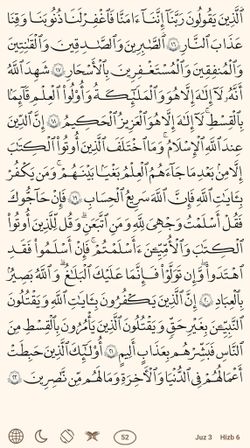 ٱلَّذِينَ يَقُولُونَ رَبَّنَآ إِنَّنَآ ءَامَنَّا فَٱغْفِرْ لَنَا ذُنُوبَنَا وَقِنَا
عَذَابَ ٱلنَّارِ ١٦ ٱلصَّٰبِرِينَ وَٱلصَّٰدِقِينَ وَٱلْقَٰنِتِينَ
وَٱلْمُنفِقِينَ وَٱلْمُسْتَغْفِرِينَ بِٱلْأَسْحَارِ ١٧ شَهِدَ ٱللَّهُ
أَنَّهُۥ لَآ إِلَٰهَ إِلَّا هُوَ وَٱلْمَلَٰٓئِكَةُ وَأُو۟لُوا۟ ٱلْعِلْمِ قَآئِمًۢا
بِٱلْقِسْطِ ۚ لَآ إِلَٰهَ إِلَّا هُوَ ٱلْعَزِيزُ ٱلْحَكِيمُ ١٨ إِنَّ ٱلدِّينَ
عِندَ ٱللَّهِ ٱلْإِسْلَٰمُ ۗ وَمَا ٱخْتَلَفَ ٱلَّذِينَ أُوتُوا۟ ٱلْكِتَٰبَ
إِلَّا مِنۢ بَعْدِ مَا جَآءَهُمُ ٱلْعِلْمُ بَغْيًۢا بَيْنَهُمْ ۗ وَمَن يَكْفُرْ
بِـَٔايَٰتِ ٱللَّهِ فَإِنَّ ٱللَّهَ سَرِيعُ ٱلْحِسَابِ ١٩ فَإِنْ حَآجُّوكَ
فَقُلْ أَسْلَمْتُ وَجْهِىَ لِلَّهِ وَمَنِ ٱتَّبَعَنِ ۗ وَقُل لِّلَّذِينَ أُوتُوا۟
ٱلْكِتَٰبَ وَٱلْأُمِّيِّـۧنَ ءَأَسْلَمْتُمْ ۚ فَإِنْ أَسْلَمُوا۟ فَقَدِ
ٱهْتَدَوا۟ ۖ وَّإِن تَوَلَّوْا۟ فَإِنَّمَا عَلَيْكَ ٱلْبَلَٰغُ ۗ وَٱللَّهُ بَصِيرٌۢ
بِٱلْعِبَادِ ٢٠ إِنَّ ٱلَّذِينَ يَكْفُرُونَ بِـَٔايَٰتِ ٱللَّهِ وَيَقْتُلُونَ
ٱلنَّبِيِّـۧنَ بِغَيْرِ حَقٍّ وَيَقْتُلُونَ ٱلَّذِينَ يَأْمُرُونَ بِٱلْقِسْطِ مِنَ
ٱلنَّاسِ فَبَشِّرْهُم بِعَذَابٍ أَلِيمٍ ٢١ أُو۟لَٰٓئِكَ ٱلَّذِينَ حَبِطَتْ
أَعْمَٰلُهُمْ فِى ٱلدُّنْيَا وَٱلْءَاخِرَةِ وَمَا لَهُم مِّن نَّٰصِرِينَ ٢٢
52 Juz 3 Hizb 6